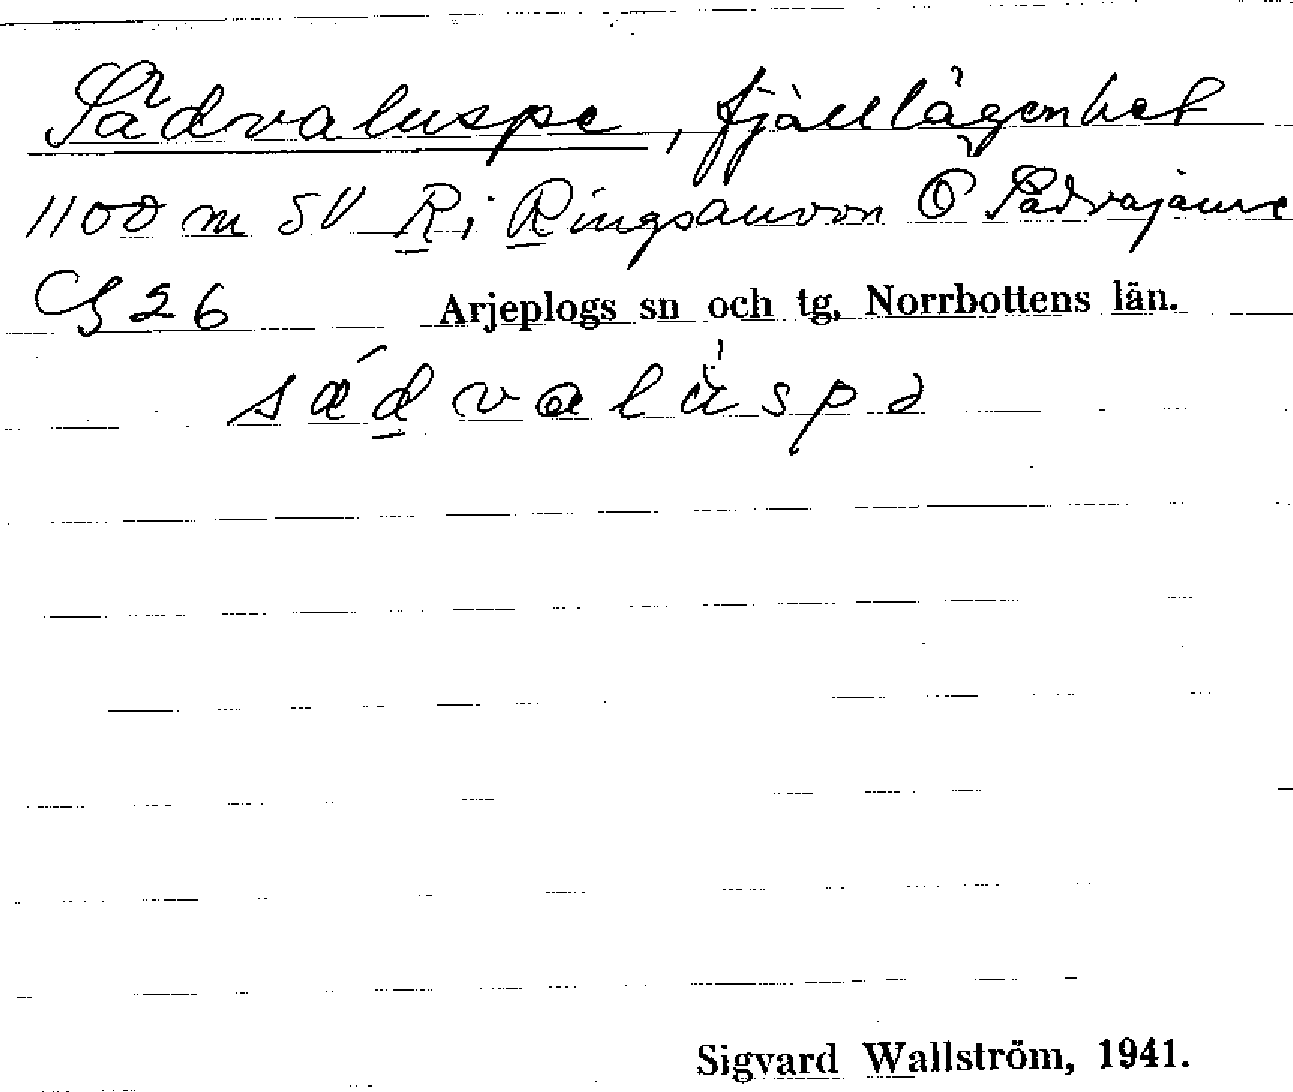 Sädvaluspe, fjällägenhet
1100 m SV R i Ringsauvon Ö Sädvajaure
G 26 Arjeplogs sn och tg. Norrbottens län.
sádvalùspə
Sigvard Wallström, 1941.